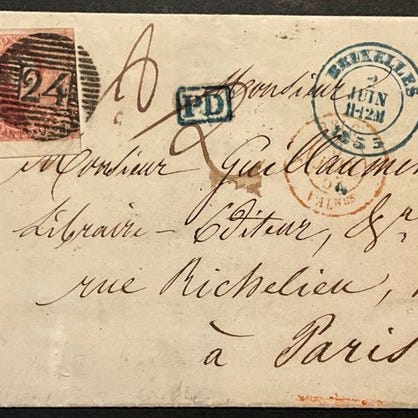 24
PD
BRUXELLES
2
JUIN
11-12M
1853
Monsieur
Monsieur Guillaumin
Libraire-Editeur, &a
rue Richelieu,
à Paris
VALNES